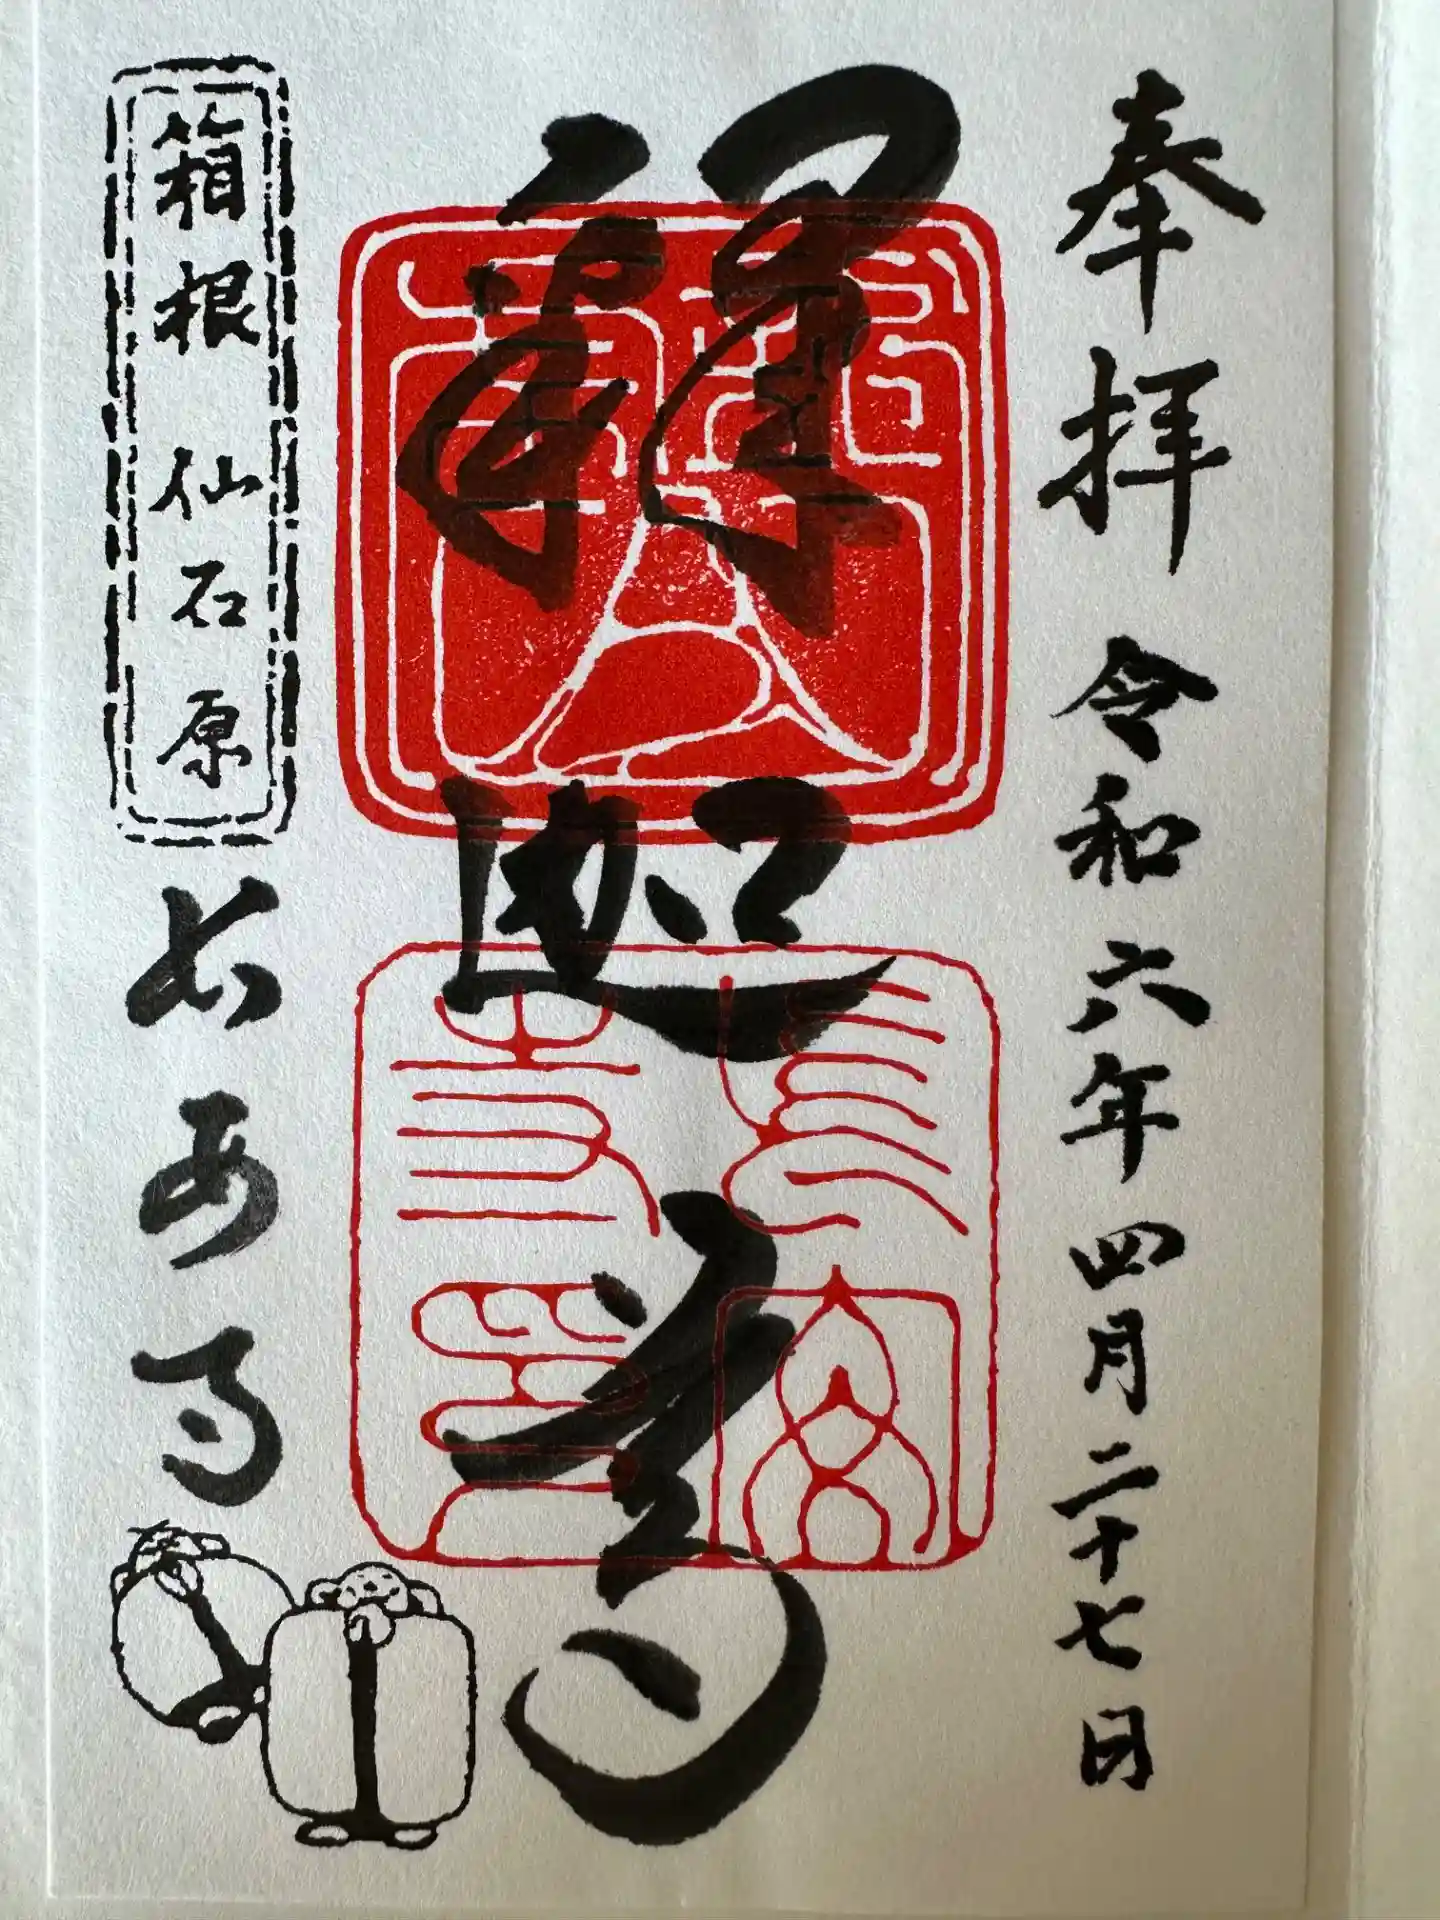 奉拝 令和六年四月二十七日
釋迦尊
長安寺印
箱根 仙石原
長安寺